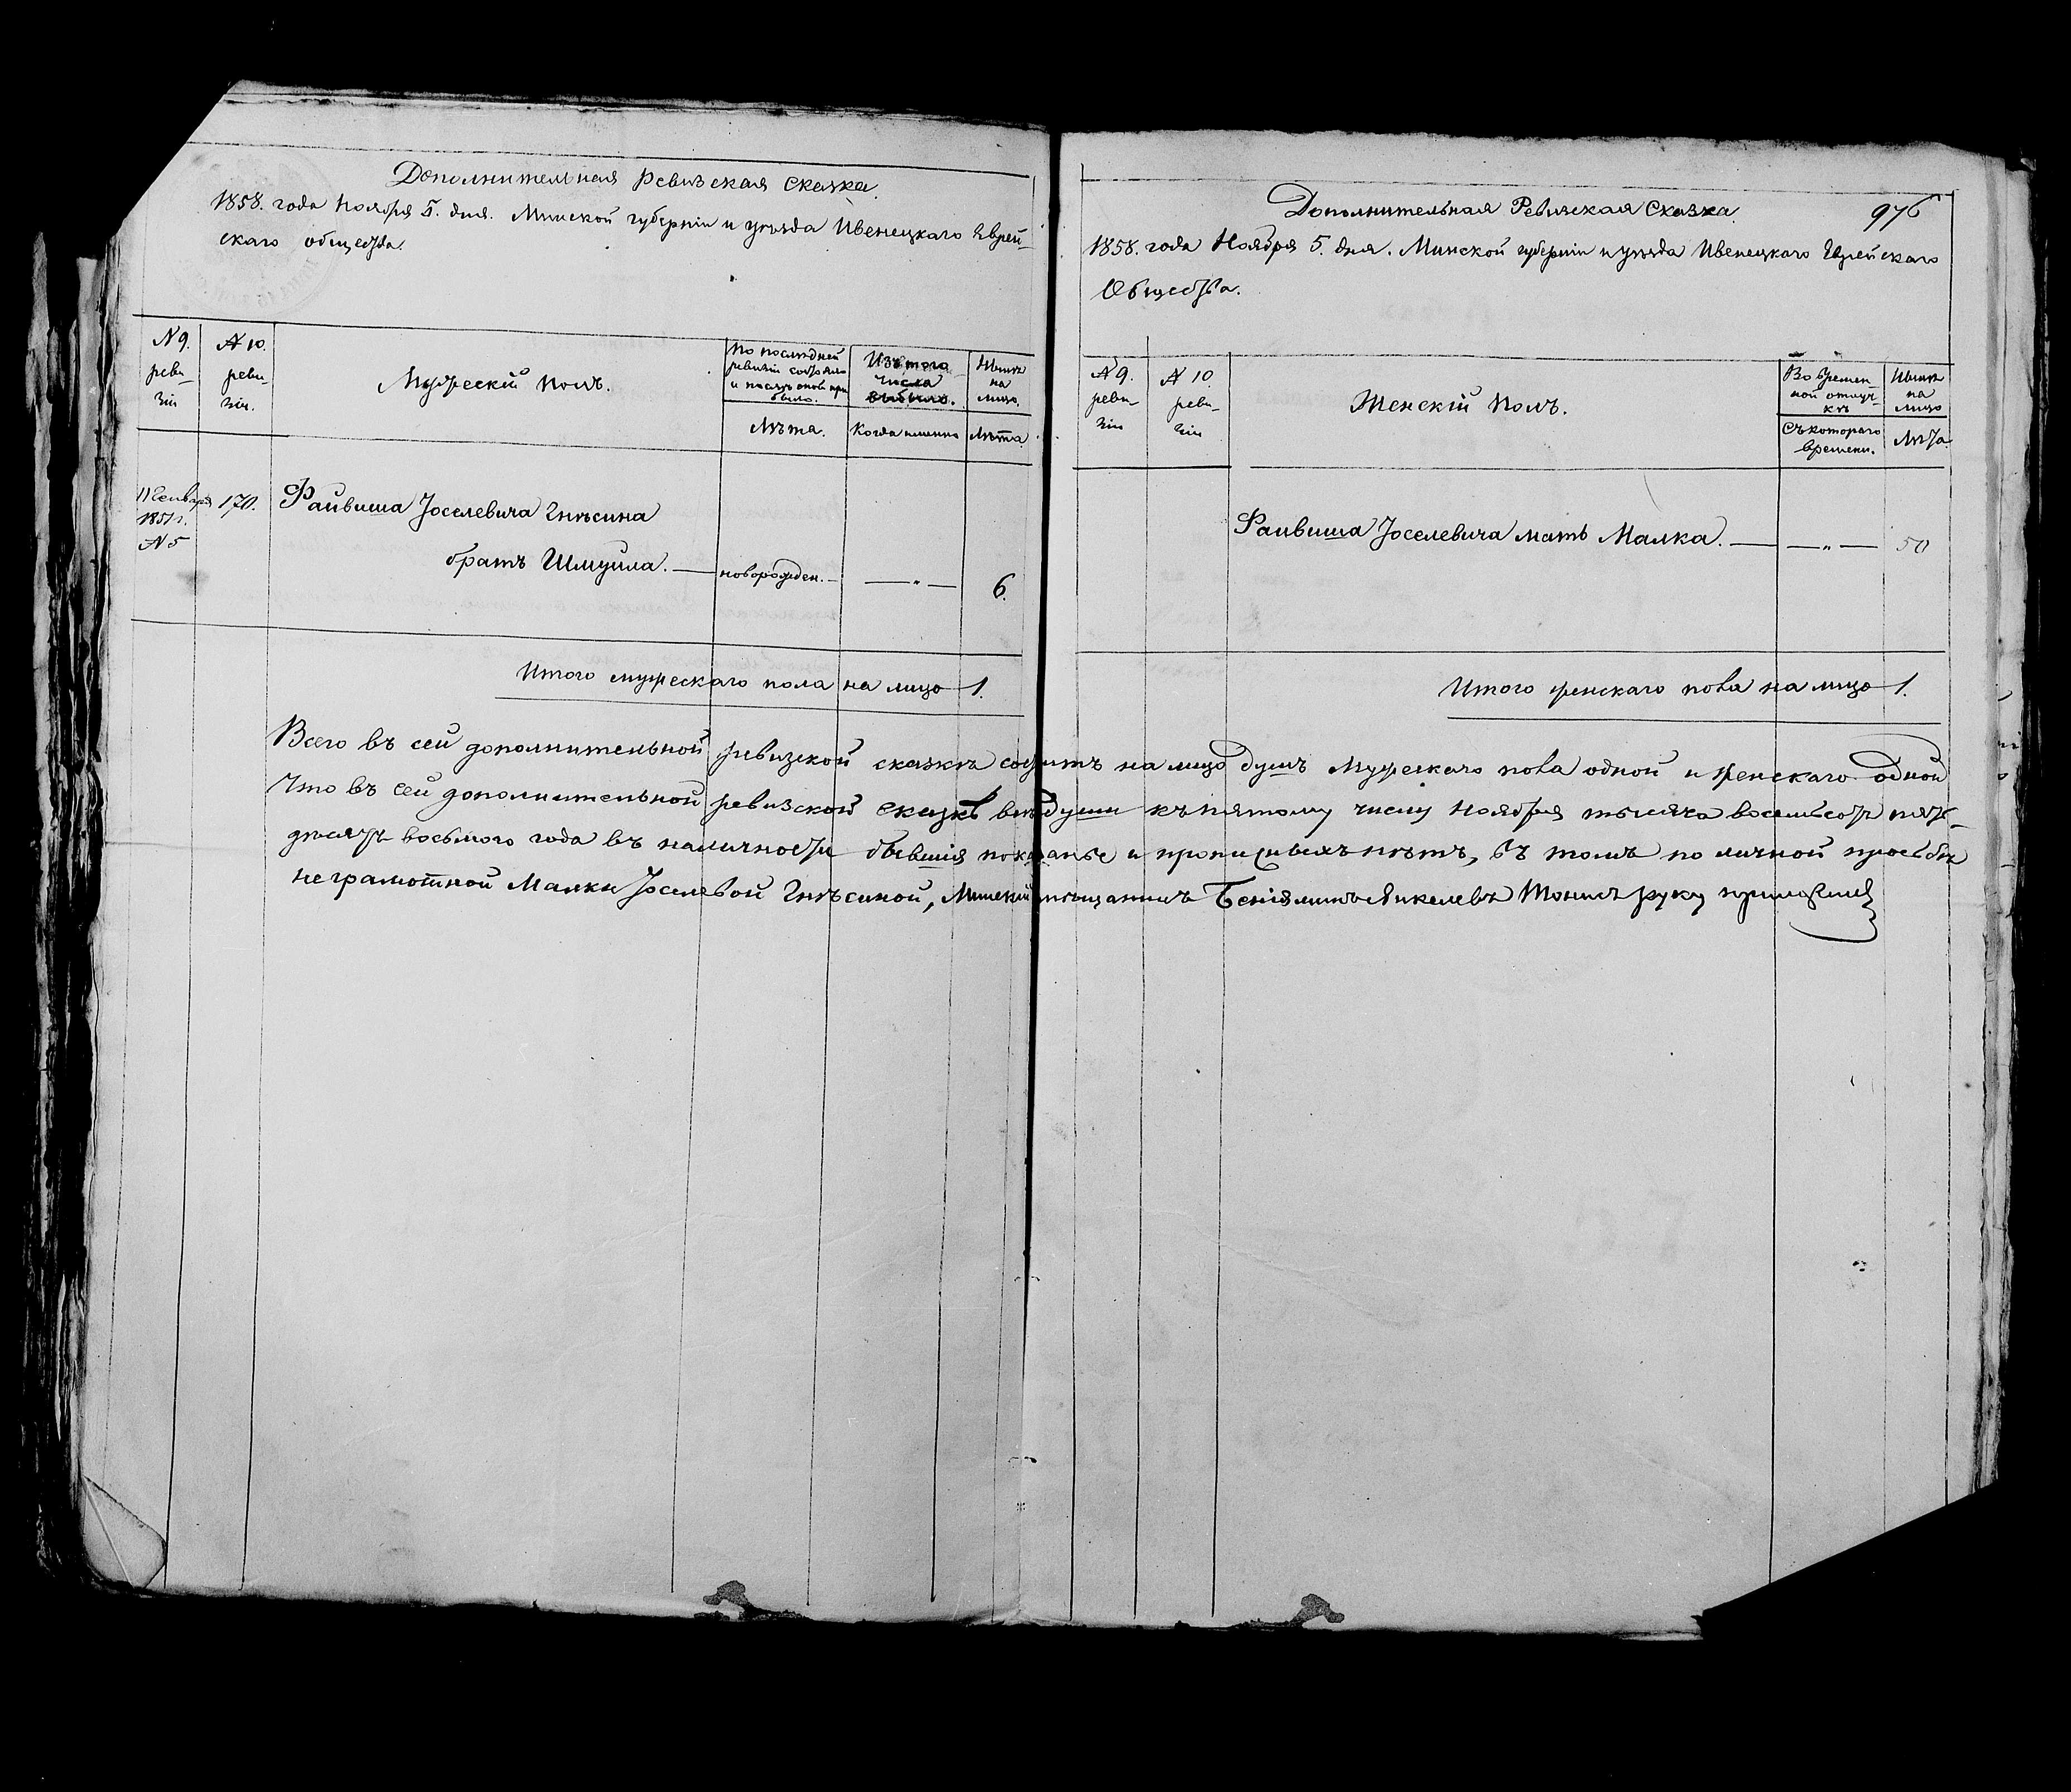 Дополнительная ревизская сказка.
1858. года Ноября 5. дня. Минской губерніи и уѣзда Ивенецкаго Еврей-
скаго общества.
№ 9. реви-зіи
№ 10. реви-зіи.
Мужескій полъ.
По послѣдней ревизіи состояло и послѣ оной при было.
Изъ того числа выбыло.
Нынѣ на лицо.
Лѣта.
Когда именно
Лѣта.
11 Генваря 1851 г. № 5
170.
Файвиша Іоселевича Гнѣсина
братъ Шмуйла. — новорожден. — — „ — 6.
Итого мужескаго пола на лицо 1.
Дополнительная Ревизская Сказка.
976
1858. года Ноября 5. дня. Минской губерніи и уѣзда Ивенецкаго Еврейскаго
Общества.
№ 9. реви-зіи
№ 10. реви-зіи
Женскій Полъ.
Во времен-ной отлуч-кѣ
Нынѣ на лицо
Съ котораго времени.
Лѣта
Файвиша Іоселевича мать Малка. — — „ — 50
Итого женскаго пола на лицо 1.
Всего въ сей дополнительной ревизской сказкѣ состоитъ на лицо душъ мужескаго пола одной и женскаго одной
Что въ сей дополнительной ревизской сказкѣ всѣ души къ пятому числу Ноября тысяча восемьсотъ пять-
десятъ восьмого года въ наличности бывшія показаны и прописныхъ нѣтъ, въ томъ по личной просьбѣ
неграмотной Малки Іоселевой Гнѣсиной, Минскій мѣщанинъ Беніяминъ Янкелевъ руку приложилъ